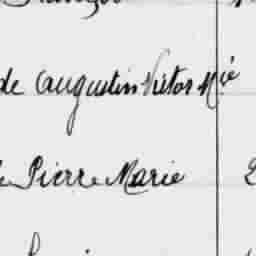 de Augustin Victor Mié
Pierre Marie
2